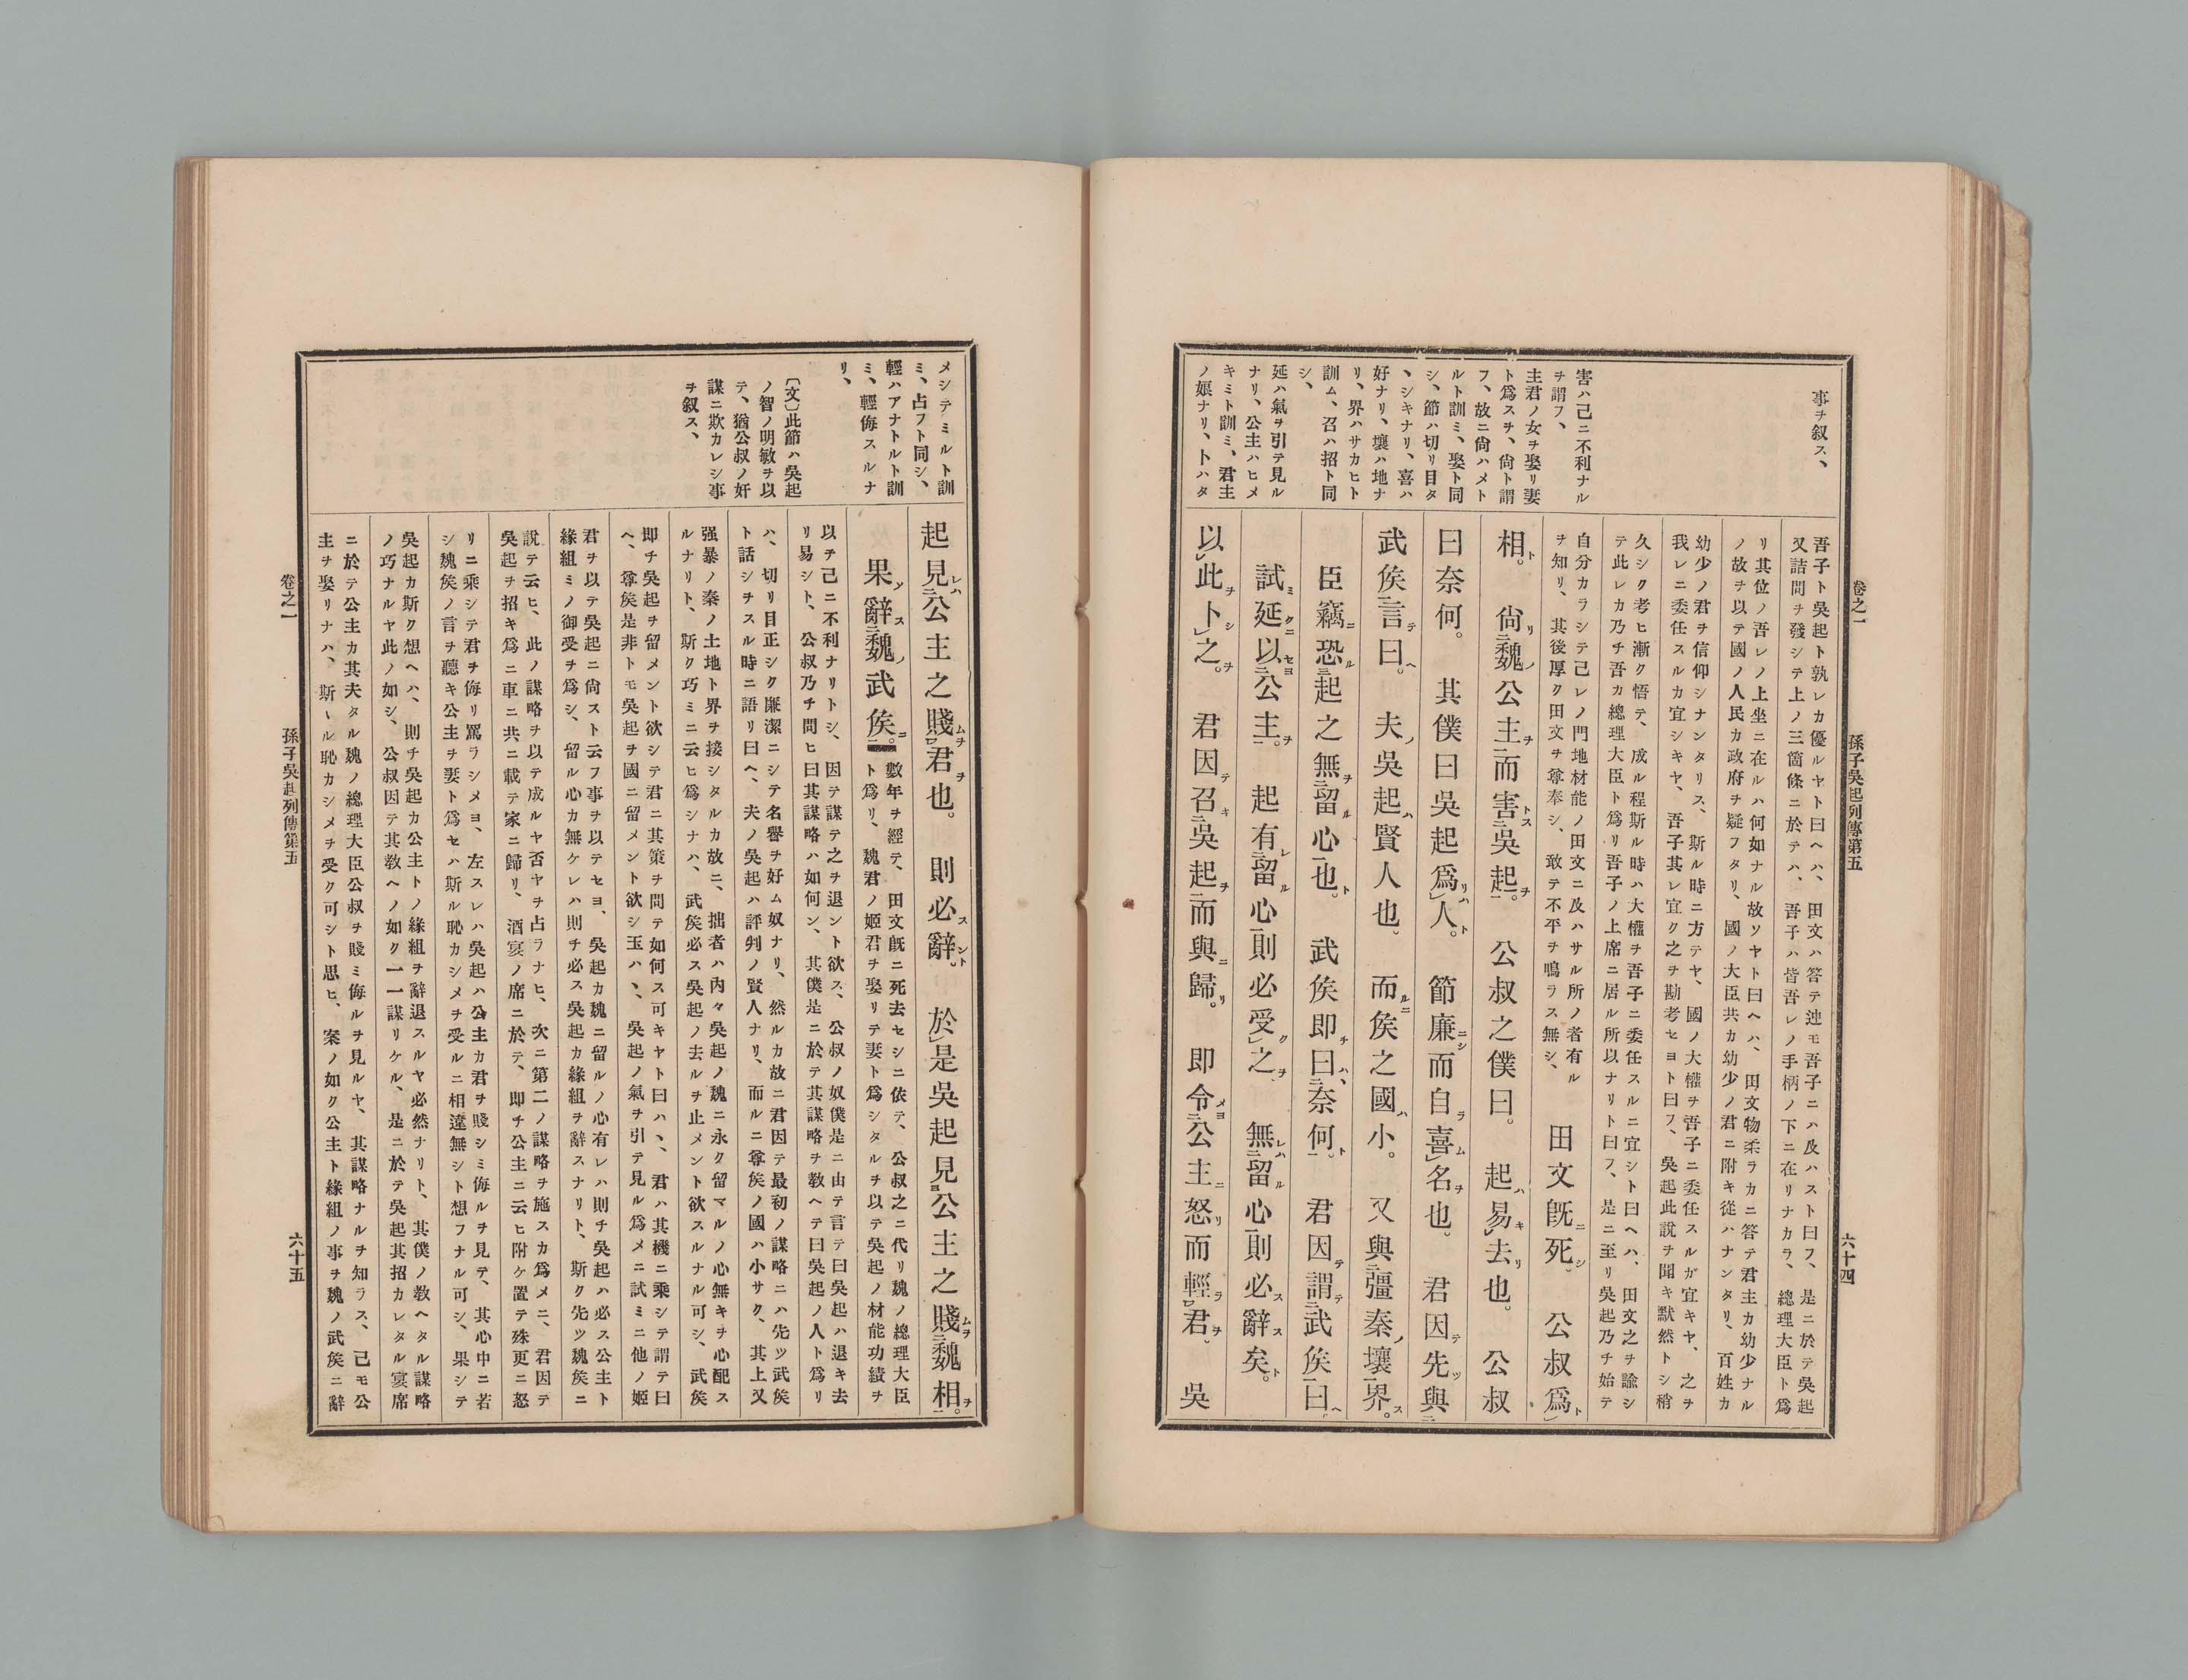 事ヲ叙ス、
害ハ己ニ不利ナル
ヲ謂フ、
主君ノ女ヲ娶リ妻
ト爲スヲ、尙ト謂
フ、故ニ尙ハメト
ルト訓ミ、娶ト同
シ、節ハ切リ目タ
ヽシキナリ、喜ハ
好ナリ、壤ハ地ナ
リ、界ハサカヒト
訓ム、召ハ招ト同
シ、
延ハ氣ヲ引テ見ル
ナリ、公主ハヒメ
キミト訓ミ、君主
ノ娘ナリ、トハタ
吾子ト吳起ト孰レカ優ルヤト曰ヘハ、田文ハ答テ迚モ吾子ニハ及ハスト曰フ、是ニ於テ吳起
又詰問ヲ發シテ上ノ三箇條ニ於テハ、吾子ハ皆吾レノ手柄ノ下ニ在リナカラ、總理大臣ト爲
リ其位ノ吾レノ上坐ニ在ルハ何如ナル故ソヤト曰ヘハ、田文物柔ラカニ答テ君主カ幼少ナル
ノ故ヲ以テ國ノ人民カ政府ヲ疑フタリ、國ノ大臣共カ幼少ノ君ニ附キ從ハナンタリ、百姓カ
幼少ノ君ヲ信仰シナンタリス、斯ル時ニ方テヤ、國ノ大權ヲ吾子ニ委任スルガ宜キヤ、之ヲ
我レニ委任スルカ宜シキヤ、吾子其レ宜ク之ヲ勘考セヨト曰フ、吳起此說ヲ聞キ默然トシ稍
久シク考ヒ漸ク悟テ、成ル程斯ル時ハ大權ヲ吾子ニ委任スルニ宜シト曰ヘハ、田文之ヲ諭シ
テ此レカ乃チ吾カ總理大臣ト爲リ吾子ノ上席ニ居ル所以ナリト曰フ、是ニ至リ吳起乃チ始テ
自分カラシテ己レノ門地材能ノ田文ニ及ハサル所ノ者有ル
ヲ知リ、其後厚ク田文ヲ尊奉シ、敢テ不平ヲ鳴ラス無シ、
田文旣死。公叔爲
相。尙魏公主而害吳起。公叔之僕曰。起易去也。公叔
曰奈何。其僕曰吳起爲人。節廉而自喜名也。君因先與
武矦言曰。夫吳起賢人也。而矦之國小。又與彊秦壤界。
臣竊恐起之無留心也。武矦卽曰、奈何。君因謂武矦曰
試延以公主。起有留心則必受之。無留心則必辭矣。
以此卜之。君因召吳起而與歸。卽令公主怒而輕君。吳
卷之一 孫子吳起列傳第五 六十四
メシテミルト訓
ミ、占フト同シ、
輕ハアナトルト訓
ミ、輕侮スルナ
リ、
〔文〕此節ハ吳起
ノ智ノ明敏ヲ以
テ、猶公叔ノ奸
謀ニ欺カレシ事
ヲ叙ス、
起見公主之賤君也。則必辭。於是吳起見公主之賤魏相。
果辭魏武矦。
數年ヲ經テ、田文旣ニ死去セシニ依テ、公叔之ニ代リ魏ノ總理大臣
ト爲リ、魏君ノ姬君ヲ娶リテ妻ト爲シタルヲ以テ吳起ノ材能功績ヲ
以テ己ニ不利ナリトシ、因テ謀テ之ヲ退ント欲ス、公叔ノ奴僕是ニ由テ言テ曰吳起ハ退キ去
リ易シト、公叔乃チ問ヒ曰其謀略ハ如何ン、其僕是ニ於テ其謀略ヲ敎ヘテ曰吳起ノ人ト爲リ
ハ、切リ目正シク廉潔ニシテ名譽ヲ好ム奴ナリ、然ルカ故ニ君因テ最初ノ謀略ニハ先ツ武矦
ト話シヲスル時ニ語リ曰ヘ、夫ノ吳起ハ評判ノ賢人ナリ、而ルニ尊矦ノ國ハ小サク、其上又
强暴ノ秦ノ土地ト界ヲ接シタルカ故ニ、拙者ハ內々吳起ノ魏ニ永ク留マルノ心無キヲ心配ス
ルナリト、斯ク巧ミニ云ヒ爲シナハ、武矦必ス吳起ノ去ルヲ止メント欲スルナル可シ、武矦
卽チ吳起ヲ留メント欲シテ君ニ其策ヲ問テ如何ス可キヤト曰ハヽ、君ハ其機ニ乘シテ謂テ曰
ヘ、尊矦是非トモ吳起ヲ國ニ留メント欲シ玉ハヽ、吳起ノ氣ヲ引テ見ル爲メニ試ミニ他ノ姬
君ヲ以テ吳起ニ尙スト云フ事ヲ以テセヨ、吳起カ魏ニ留ルノ心有レハ則チ吳起ハ必ス公主ト
緣組ミノ御受ヲ爲シ、留ル心カ無ケレハ則チ必ス吳起カ緣組ヲ辭スナリト、斯ク先ツ魏矦ニ
說テ云ヒ、此ノ謀略ヲ以テ成ルヤ否ヤヲ占ラナヒ、次ニ第二ノ謀略ヲ施スカ爲メニ、君因テ
吳起ヲ招キ爲ニ車ニ共ニ載テ家ニ歸リ、酒宴ノ席ニ於テ、卽チ公主ニ云ヒ附ケ置テ殊更ニ怒
リニ乘シテ君ヲ侮リ罵ラシメヨ、左スレハ吳起ハ公主カ君ヲ賤シミ侮ルヲ見テ、其心中ニ若
シ魏矦ノ言ヲ聽キ公主ヲ妻ト爲セハ斯ル恥カシメヲ受ルニ相違無シト想フナル可シ、果シテ
吳起カ斯ク想ヘハ、則チ吳起カ公主トノ緣組ヲ辭退スルヤ必然ナリト、其僕ノ敎ヘタル謀略
ノ巧ナルヤ此ノ如シ、公叔因テ其敎ヘノ如ク一一謀リケル、是ニ於テ吳起其招カレタル宴席
ニ於テ公主カ其夫タル魏ノ總理大臣公叔ヲ賤ミ侮ルヲ見ルヤ、其謀略ナルヲ知ラス、己モ公
主ヲ娶リナハ、斯ヽル恥カシメヲ受ク可シト思ヒ、案ノ如ク公主ト緣組ノ事ヲ魏ノ武矦ニ辭
卷之一 孫子吳起列傳第五 六十五